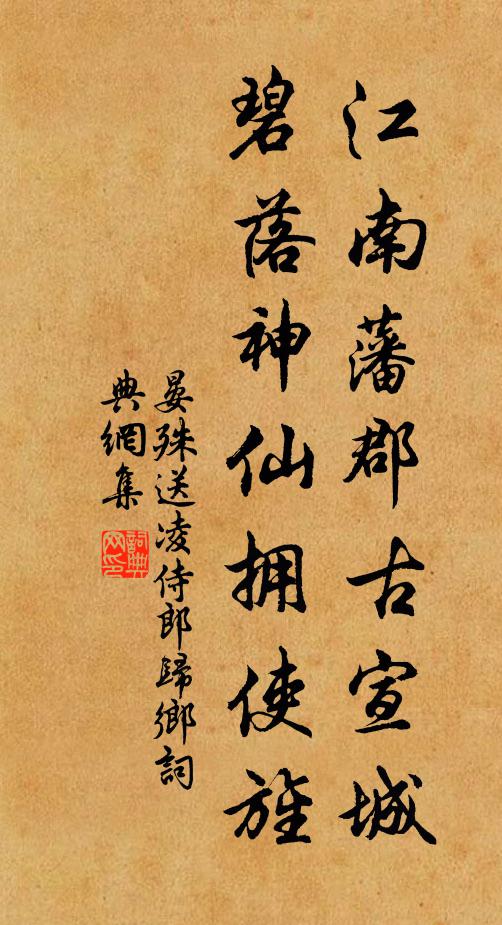 江南藩郡古宣城
碧落神仙拥使旌
晏殊送凌侍郎歸鄉詞
典網集
詞典网印